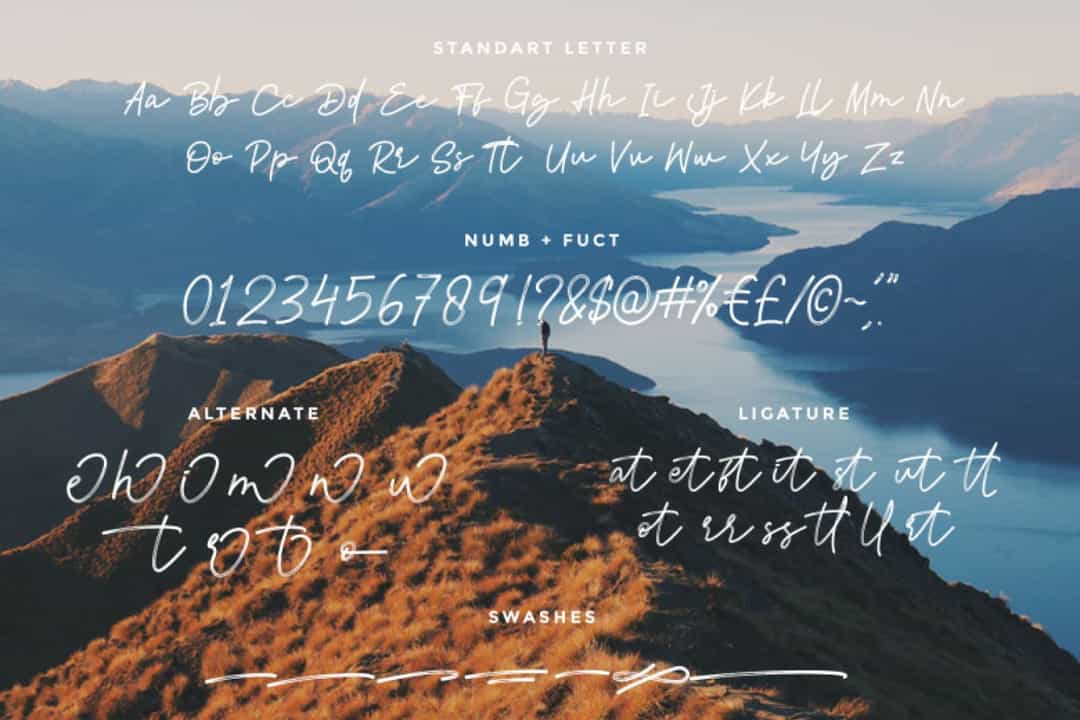 STANDART LETTER
Aa Bb Cc Dd Ee Ff Gg Hh Ii Jj Kk Ll Mm Nn
Oo Pp Qq Rr Ss Tt Uu Vv Ww Xx Yy Zz
NUMB + FUCT
0123456789!?&$@#%€£/©~,;'"
ALTERNATE
LIGATURE
e h i m n u
at et ft it st ut tt
t
ot rr ss tt ll rt
SWASHES